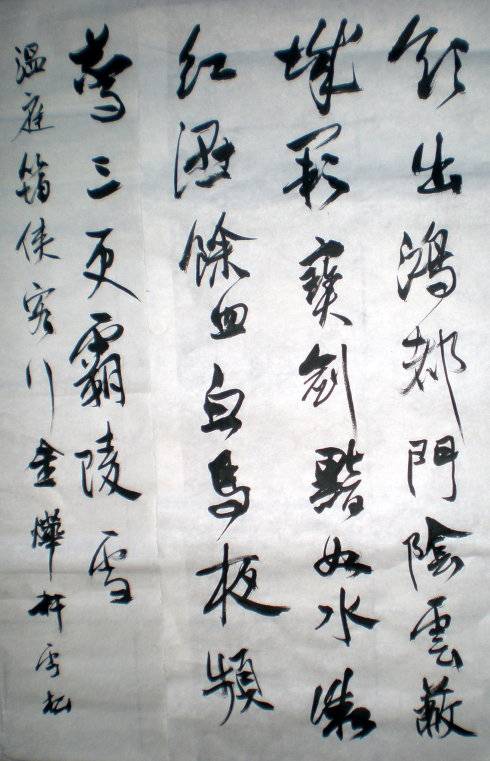 欲出鴻都門陰雲蔽
城闕寶劍黯如水微
紅濕餘血白馬夜頻
驚三更霸陵雪
溫庭筠俠客行金燁雪松